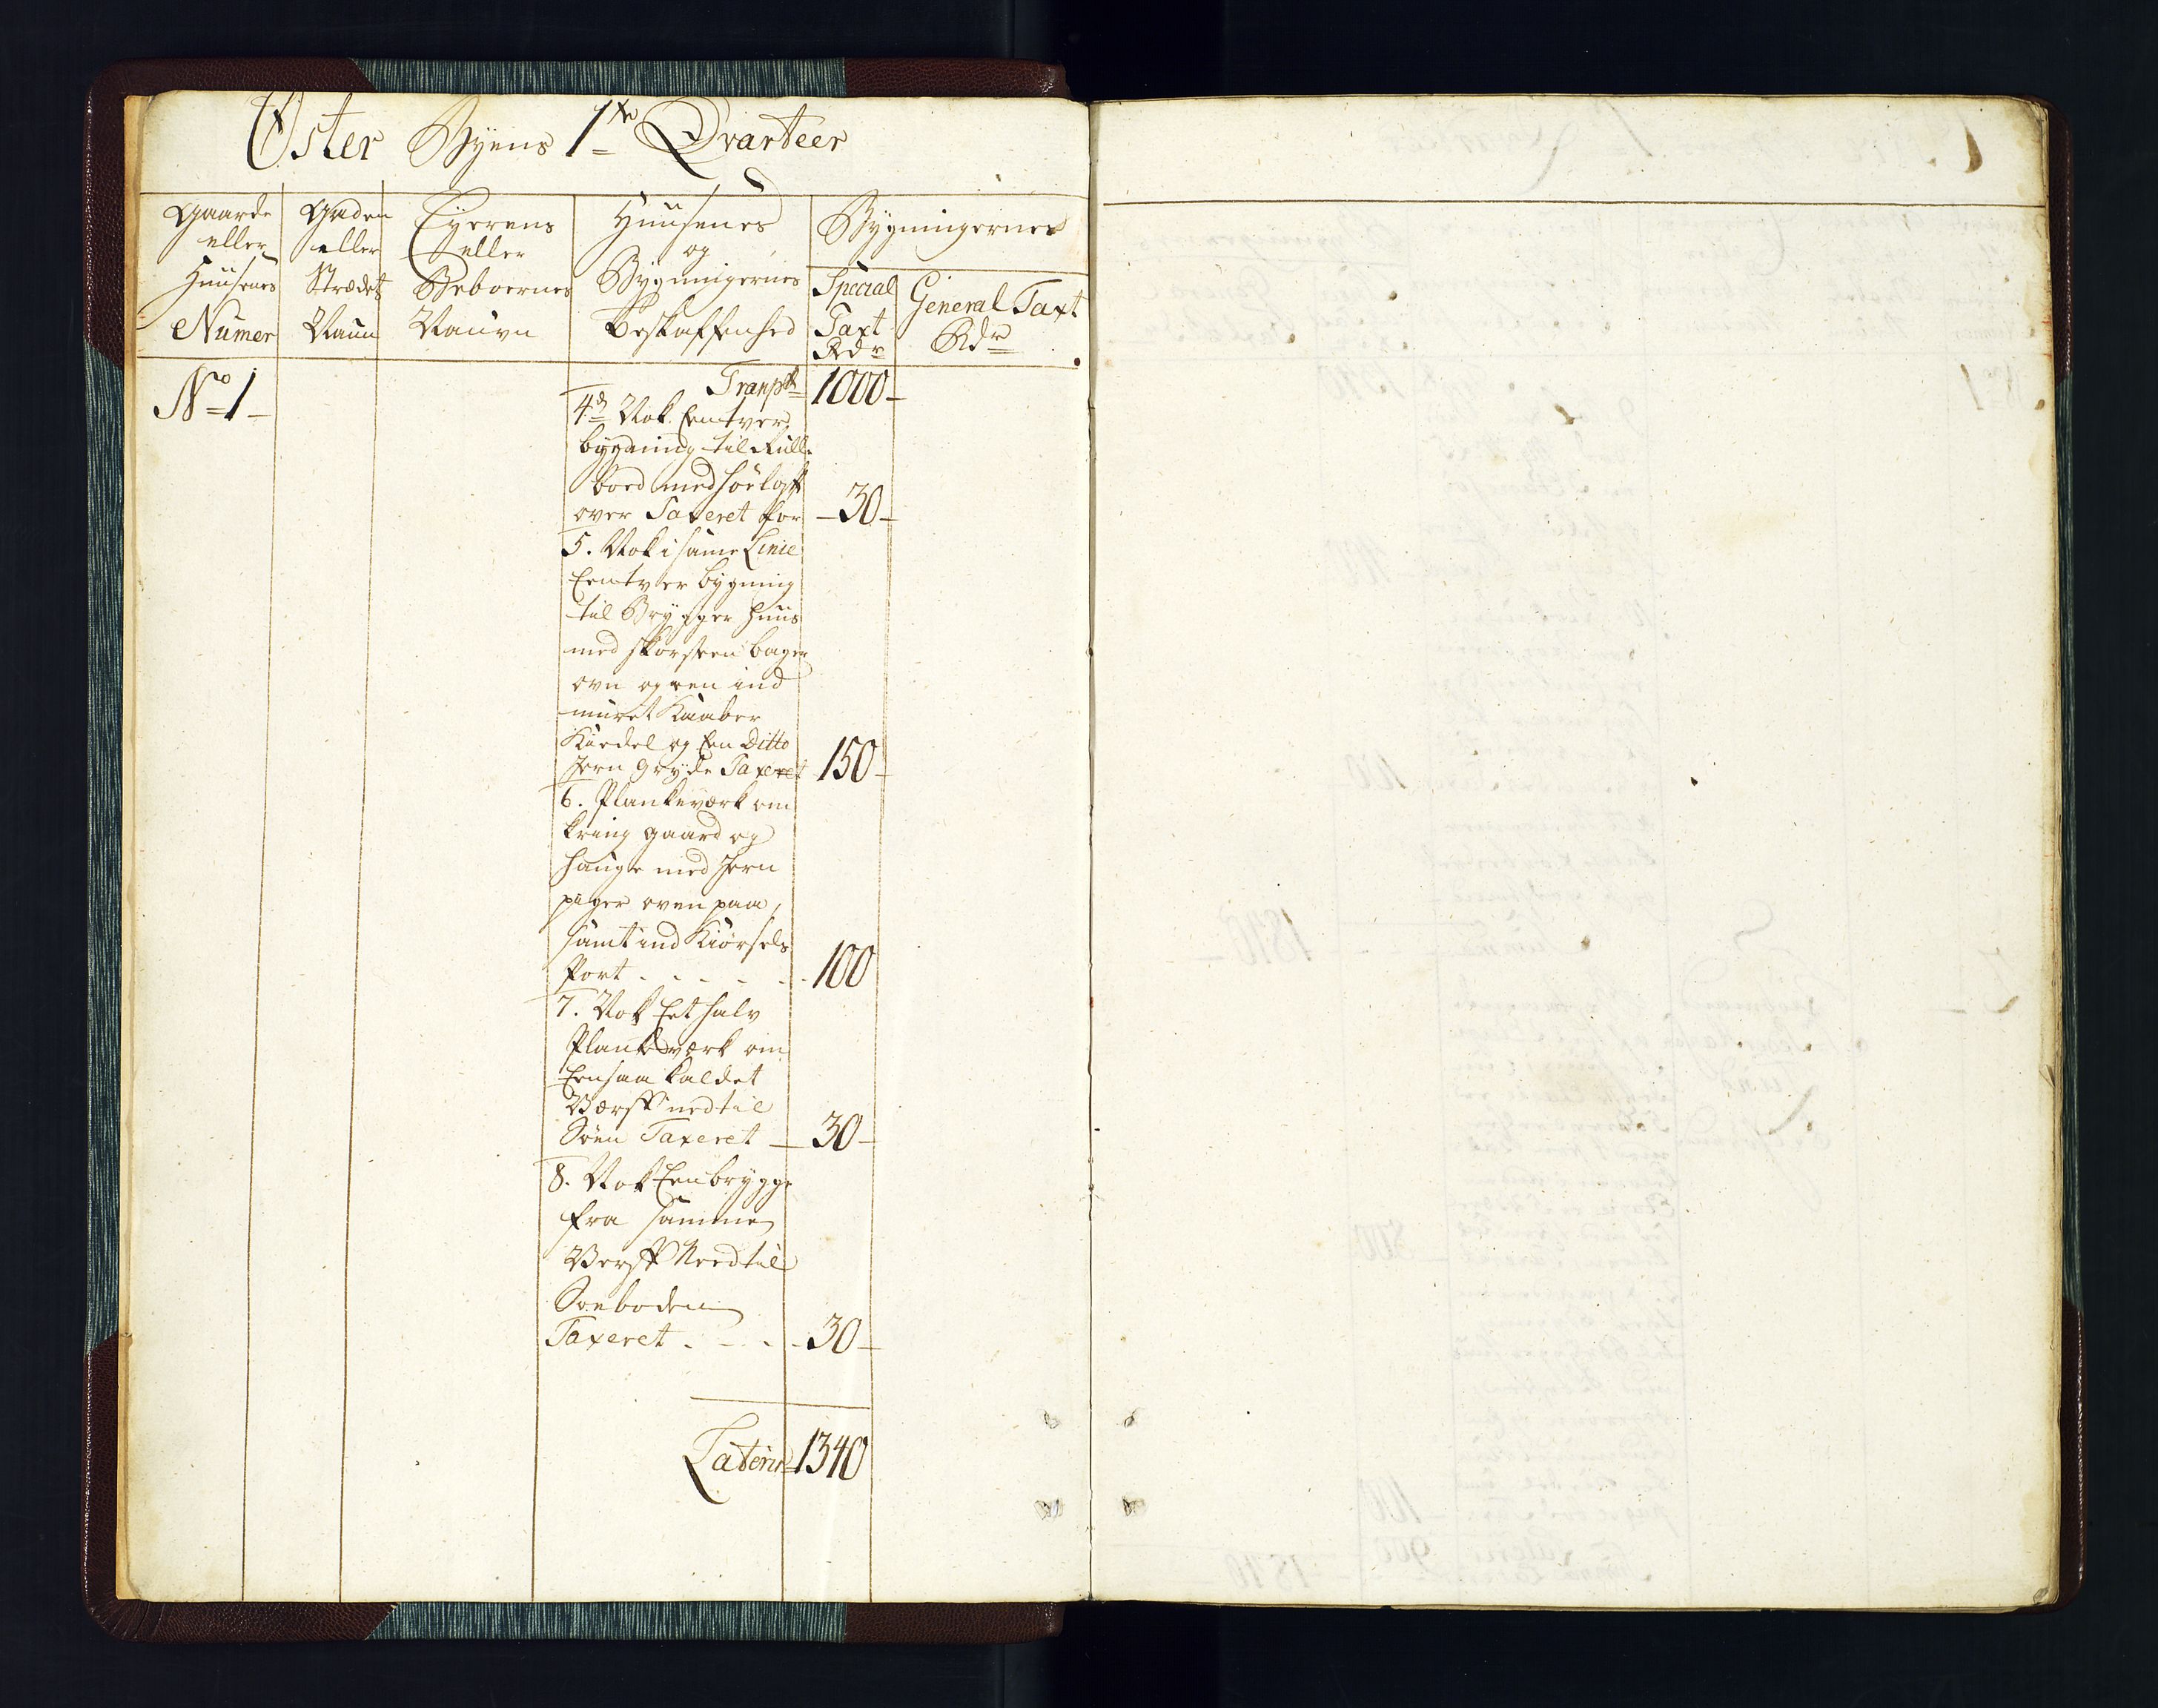 Øster Byens 1te Qvarteer
Gaarde
eller
Huusenes
Numer
Gaden
eller
Strædets
Naun
Eyerens
eller
Beboernes
Nauvn
Huusenes
og
Bygningernes
Beskaffenhed
Bygningernes
Special
Taxt
Rdr
General Taxt
Rdr
No 1
Transpt 1000
4de Nok Een tver
bygning til Rulle
bord med Høeloft
over Taxeret for 30
5. Nok i samme Linie
Een tver bygning
til Brygger Huus
med skorsteen bager
ovn og een ind
muret Kaaber
Kiedel og Een Ditto
Jern Gryde Taxeret 150
6. Plankeværk om
kring gaard og
hauge med Jern
piger oven paa,
samt ind Kiørsels
Port 100
7. Nok Eet halv
Plankeværk om
Een saa kaldet
Værft ned til
Søen Taxeret 30
8. Nok Een brygge
fra samme
Verft Need til
Søeboden
Taxeret 30
Laterir 1340